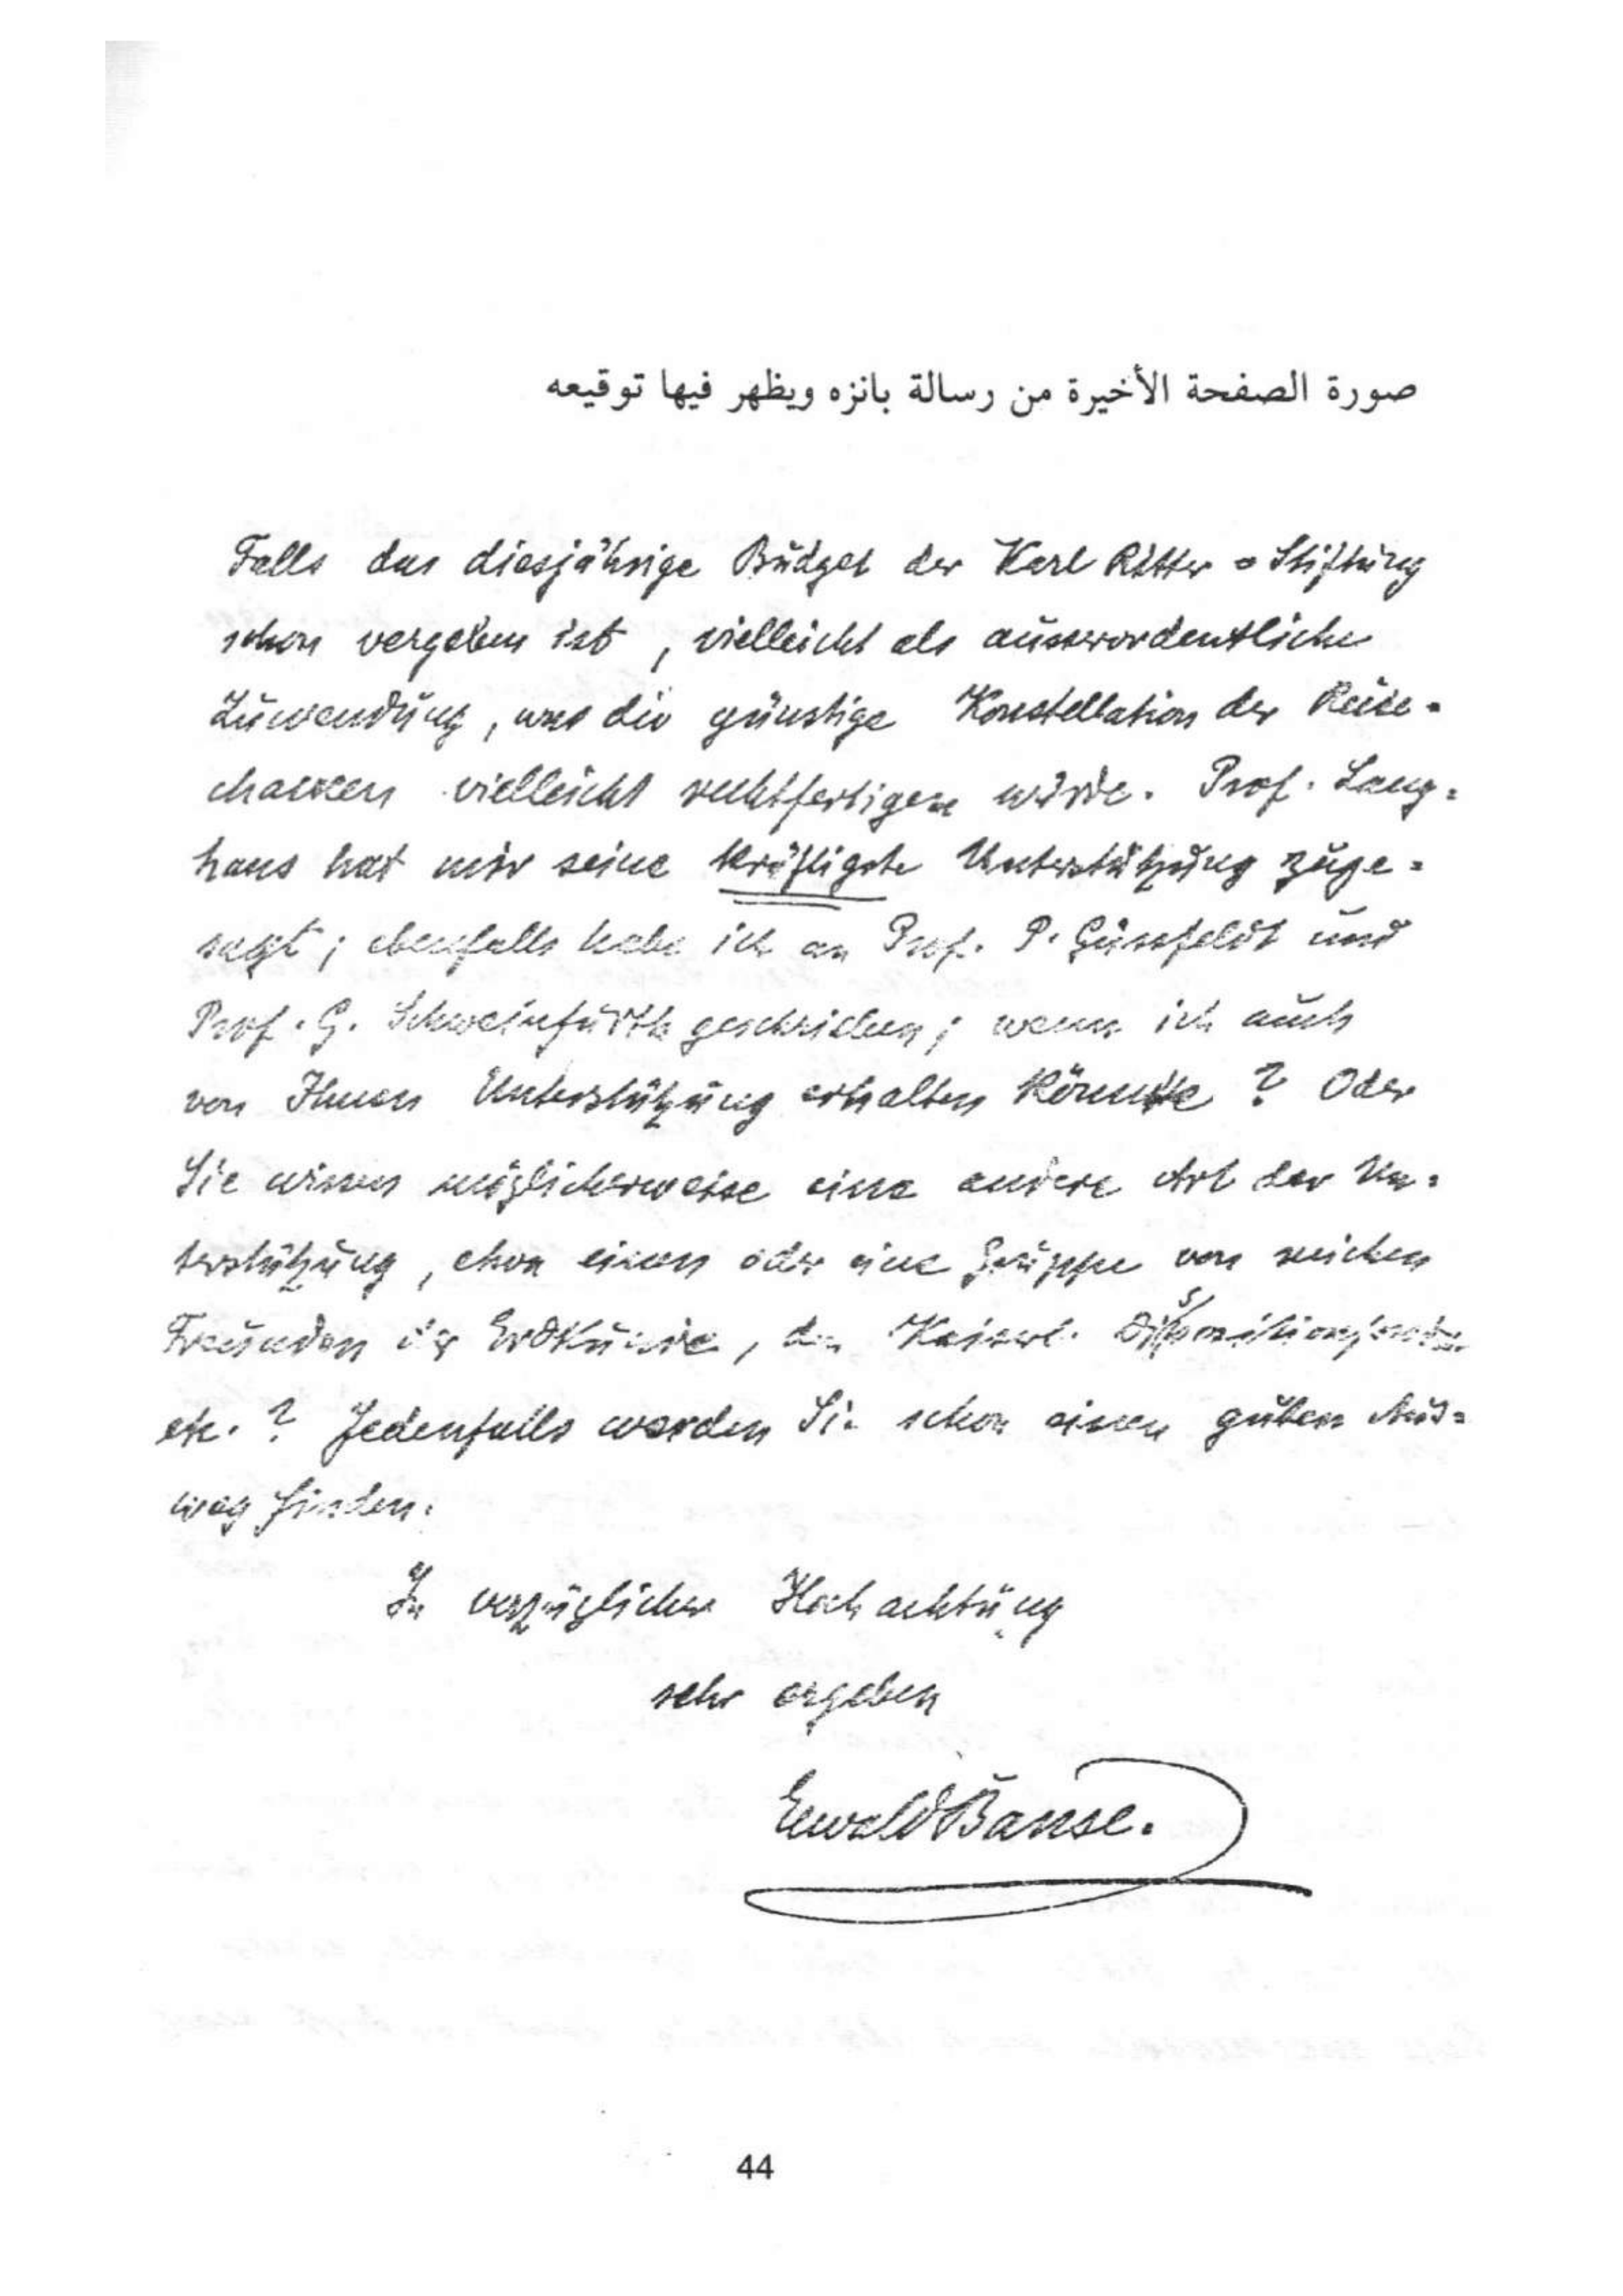 صورة الصفحة الأخيرة من رسالة بانزه ويظهر فيها توقيعه
Falls das diesjährige Budget der Karl Ritter=Stiftung
schon vergeben ist, vielleicht als ausserordentliche
Zuwendung, was die günstige Konstellation der Reise=
chancen vielleicht rechtfertigen würde. Prof. Lang=
hans hat mir seine kräftigste Unterstützung zuge=
sagt; ebenfalls habe ich an Prof. P. Güssfeldt und
Prof. G. Schweinfurth geschrieben; wenn ich auch
von Ihnen Unterstützung erhalten könnte? Oder
Sie wissen möglicherweise eine andere Art der Un=
terstützung, etwa einen oder eine Gruppe von reichen
Freunden der Erdkunde, den Kaiserl. Dispositionsfonds
etc.? Jedenfalls werden Sie schon einen guten Aus=
weg finden.
In vorzüglicher Hochachtung
sehr ergeben
Ewald Banse.
44